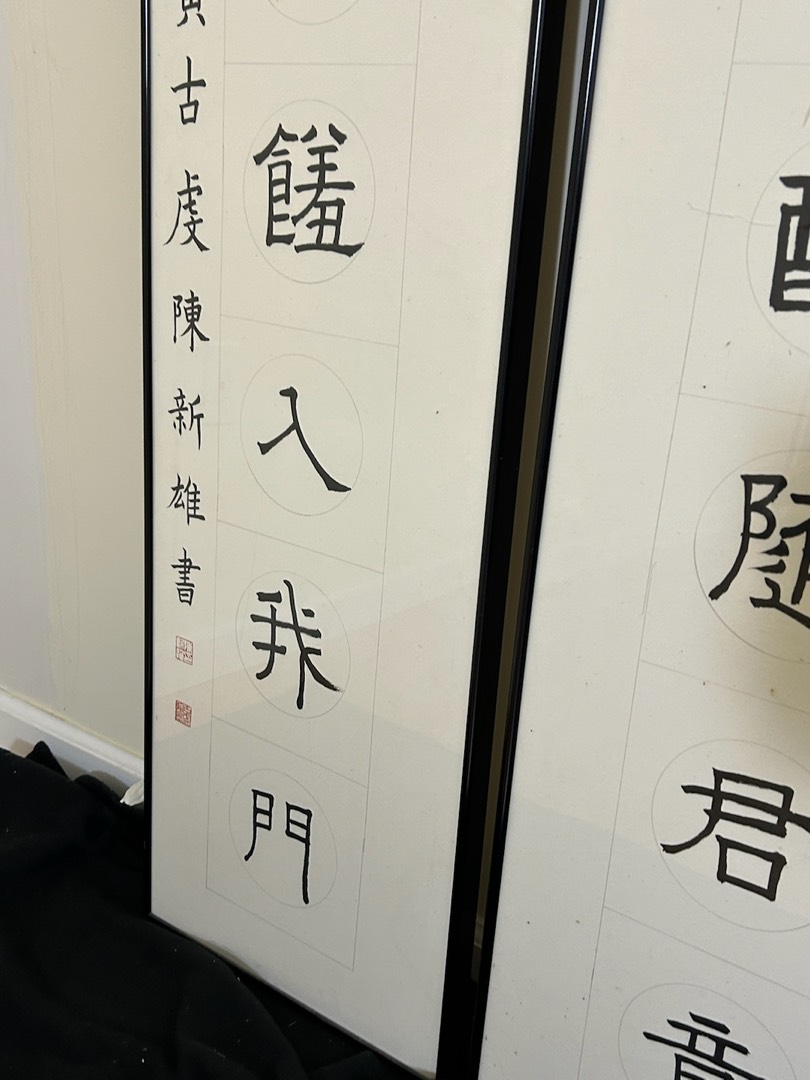 隨君意
饈入我門
古虔陳新雄書